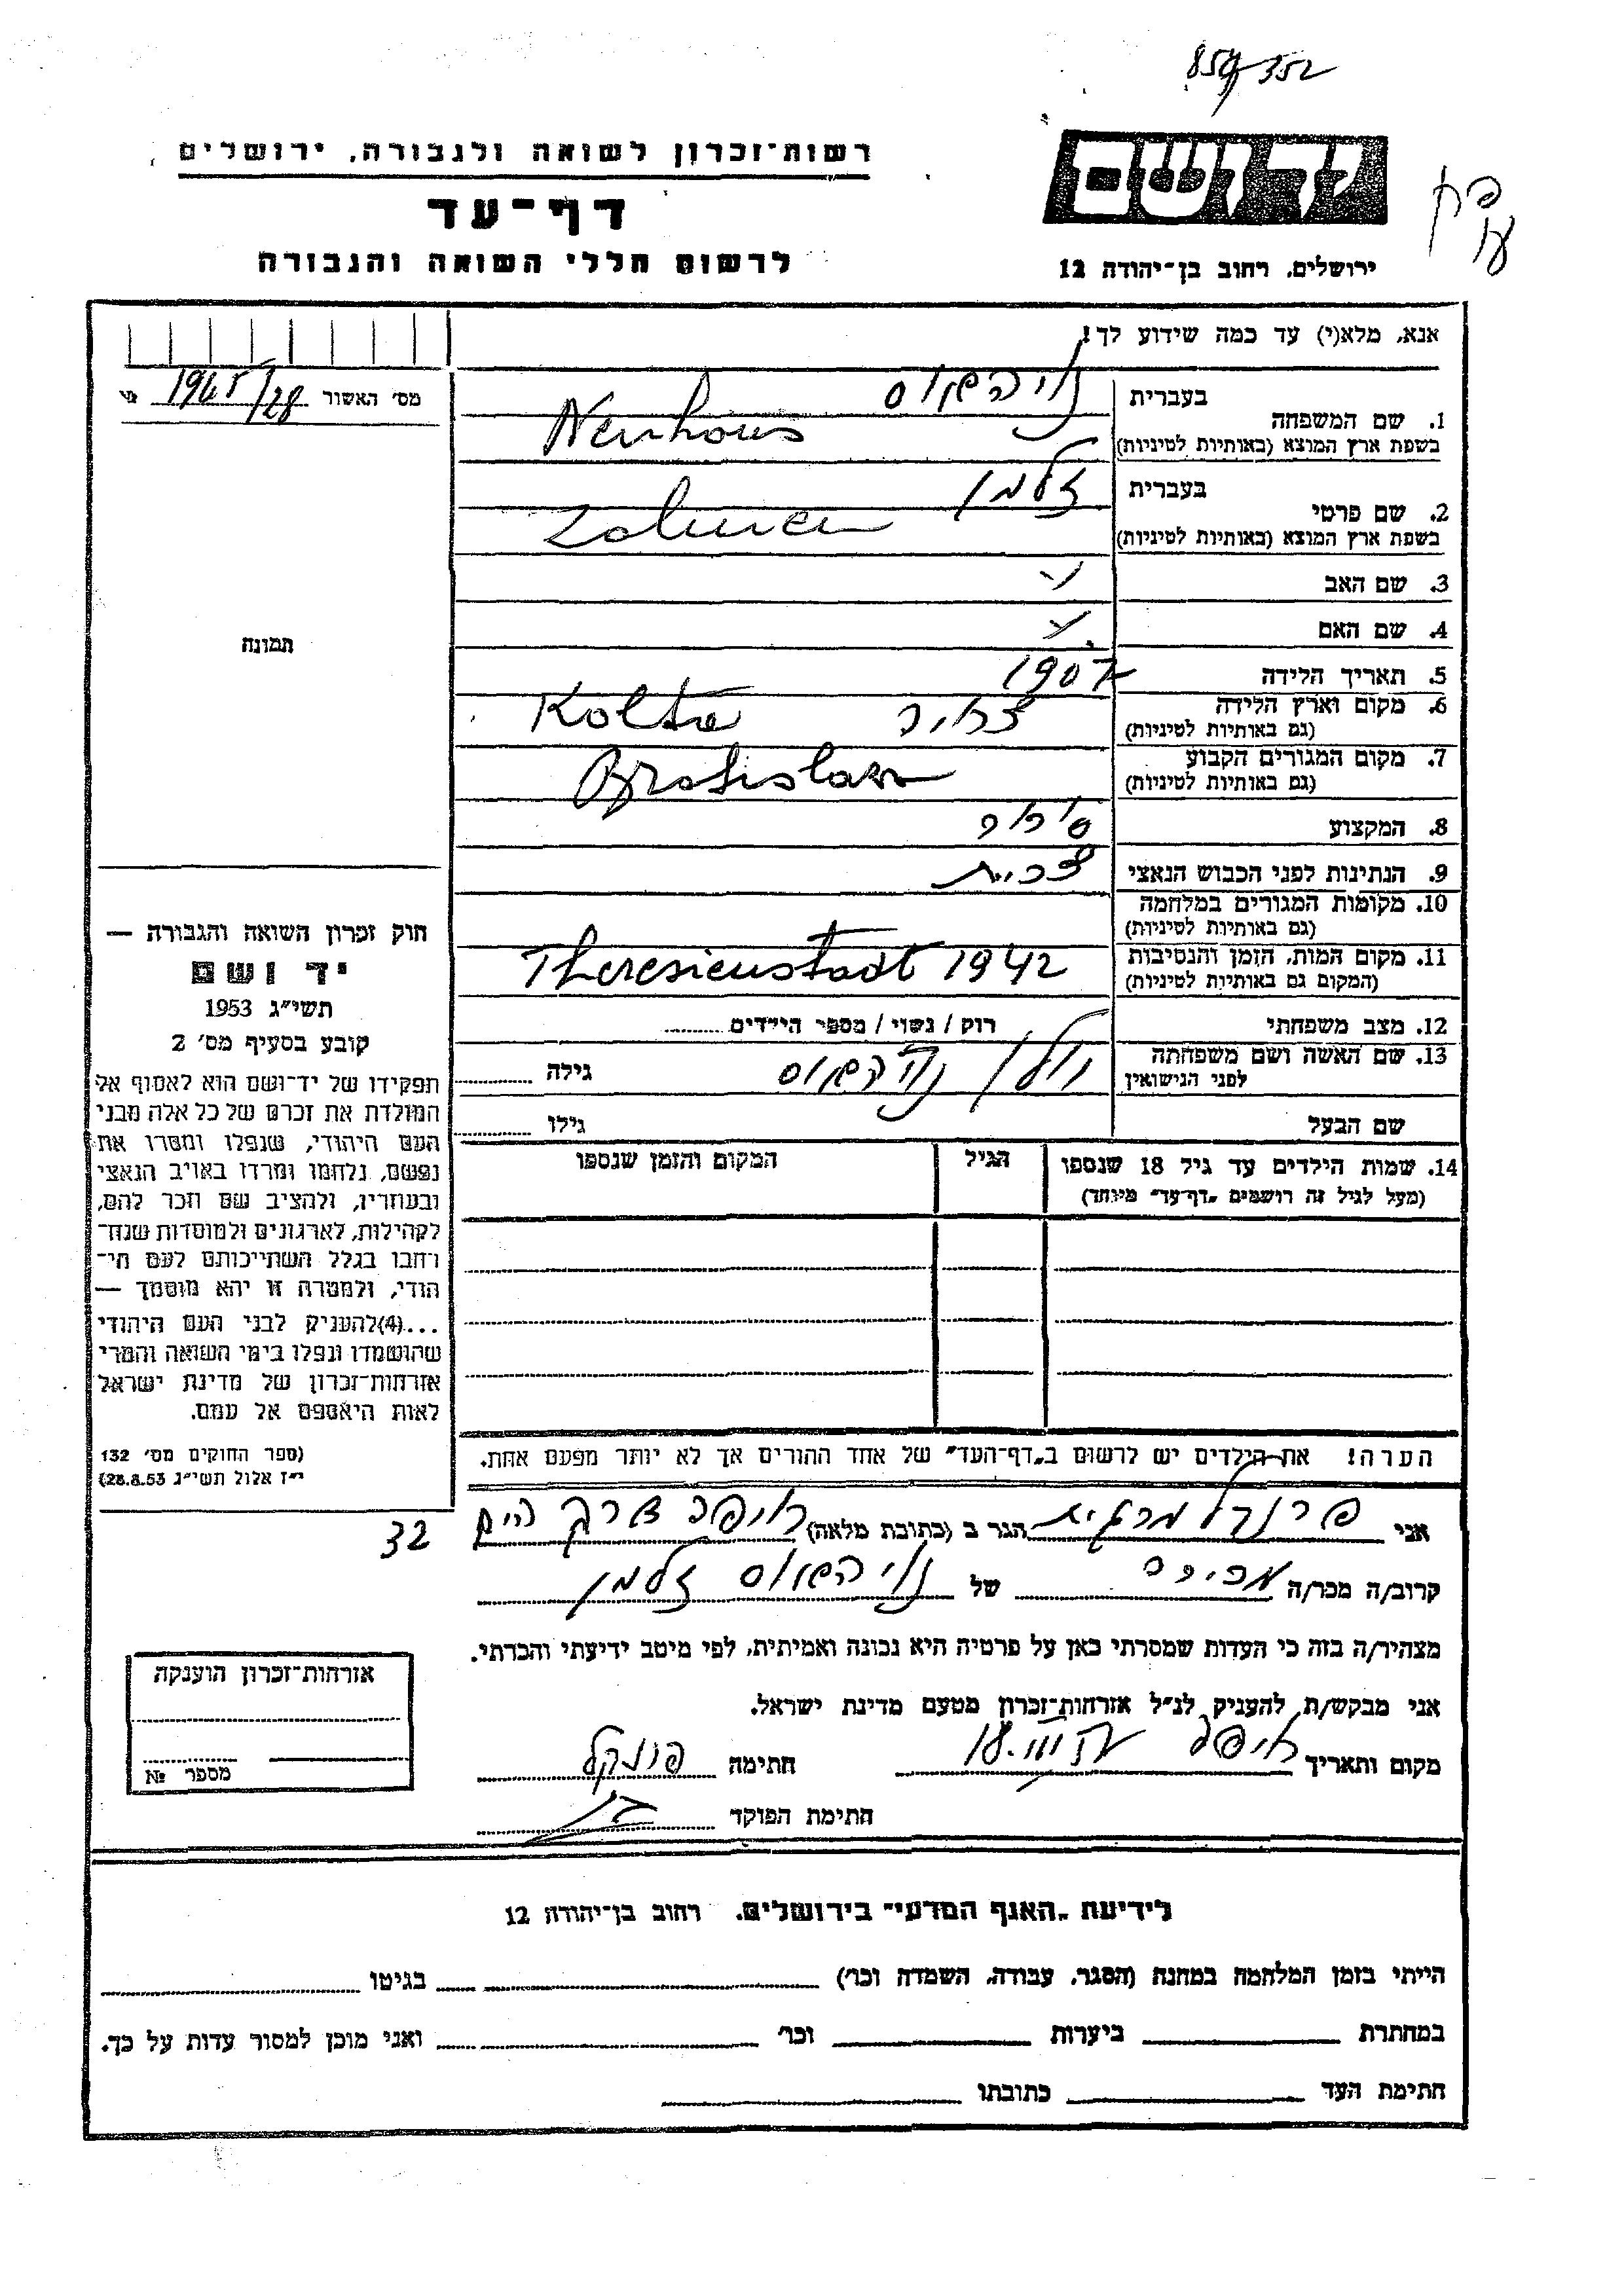 859/352
רשות־זכרון לשואה ולגבורה, ירושלים
דף־עד
לרשום חללי השואה והגבורה
ידושם
ירושלים, רחוב בן־יהודה 12
אנא, מלא(י) עד כמה שידוע לך!
מס׳ האשור 1965/28
בעברית נויהאוס
1. שם המשפחה
בשפת ארץ המוצא (באותיות לטיניות) Neuhaus
בעברית זלמן
2. שם פרטי
בשפת ארץ המוצא (באותיות לטיניות) Zalman
3. שם האב
4. שם האם
5. תאריך הלידה 1907
6. מקום וארץ הלידה
(גם באותיות לטיניות)
7. מקום המגורים הקבוע
(גם באותיות לטיניות)
8. המקצוע סוחר
9. הנתינות לפני הכבוש הנאצי צכית
10. מקומות המגורים במלחמה
(גם באותיות לטיניות)
11. מקום המות, הזמן והנסיבות Theresienstadt 1942
(המקום גם באותיות לטיניות)
12. מצב משפחתי רוק / נשוי / מספר הילדים
13. שם האשה ושם משפחתה נויהאוס גילה
לפני הנישואין
שם הבעל גילו
14. שמות הילדים עד גיל 18 שנספו הגיל המקום והזמן שנספו
(מעל לגיל זה רושמים „דף־עד״ מיוחד)
הערה! את הילדים יש לרשום ב„דף־העד״ של אחד ההורים אך לא יותר מפעם אחת.
תמונה
חוק זכרון השואה והגבורה —
יד ושם
תשי״ג 1953
קובע בסעיף מס׳ 2
תפקידו של יד־ושם הוא לאסוף אל
המולדת את זכרם של כל אלה מבני
העם היהודי, שנפלו ומסרו את
נפשם, נלחמו ומרדו באויב הנאצי
ובעוזריו, ולהציב שם וזכר להם,
לקהילות, לארגונים ולמוסדות שנח־
רחבו בגלל השתייכותם לעם הי־
הודי, ולמטרה זו יהא מוסמך —
...(4)להעניק לבני העם היהודי
שהושמדו ונפלו בימי השואה והמרי
אזרחות־זכרון של מדינת ישראל
לאות היאספם אל עמם.
(ספר החוקים מס׳ 132
י״ז אלול תשי״ג 28.8.53)
אני פרנקל מרגית הגר ב (כתובת מלאה) חיפה דרך הים 32
קרוב/ה מכר/ה מכירה של נויהאוס זלמן
מצהיר/ה בזה כי העדות שמסרתי כאן על פרטיה היא נכונה ואמיתית, לפי מיטב ידיעתי והכרתי.
אני מבקש/ת להעניק לנ״ל אזרחות־זכרון מטעם מדינת ישראל.
מקום ותאריך חיפה חתימה פרנקל
חתימת הפוקד
אזרחות־זכרון הוענקה
מספר №
לידיעת „האגף המדעי״ בירושלים, רחוב בן־יהודה 12
הייתי בזמן המלחמה במחנה (הסגר, עבודה, השמדה וכר׳) בגיטו
במחתרת ביערות וכר׳ ואני מוכן למסור עדות על כך.
חתימת העד כתובתו